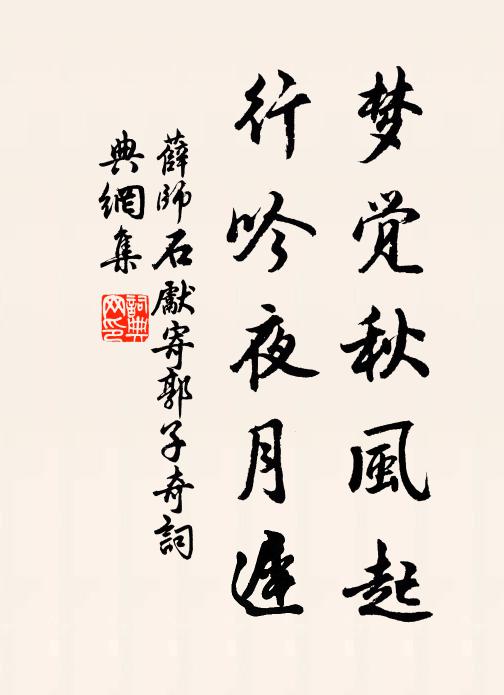 梦觉秋風起
行吟夜月遲
薛師石獻寄郭子奇詞
典網集
詞典網印